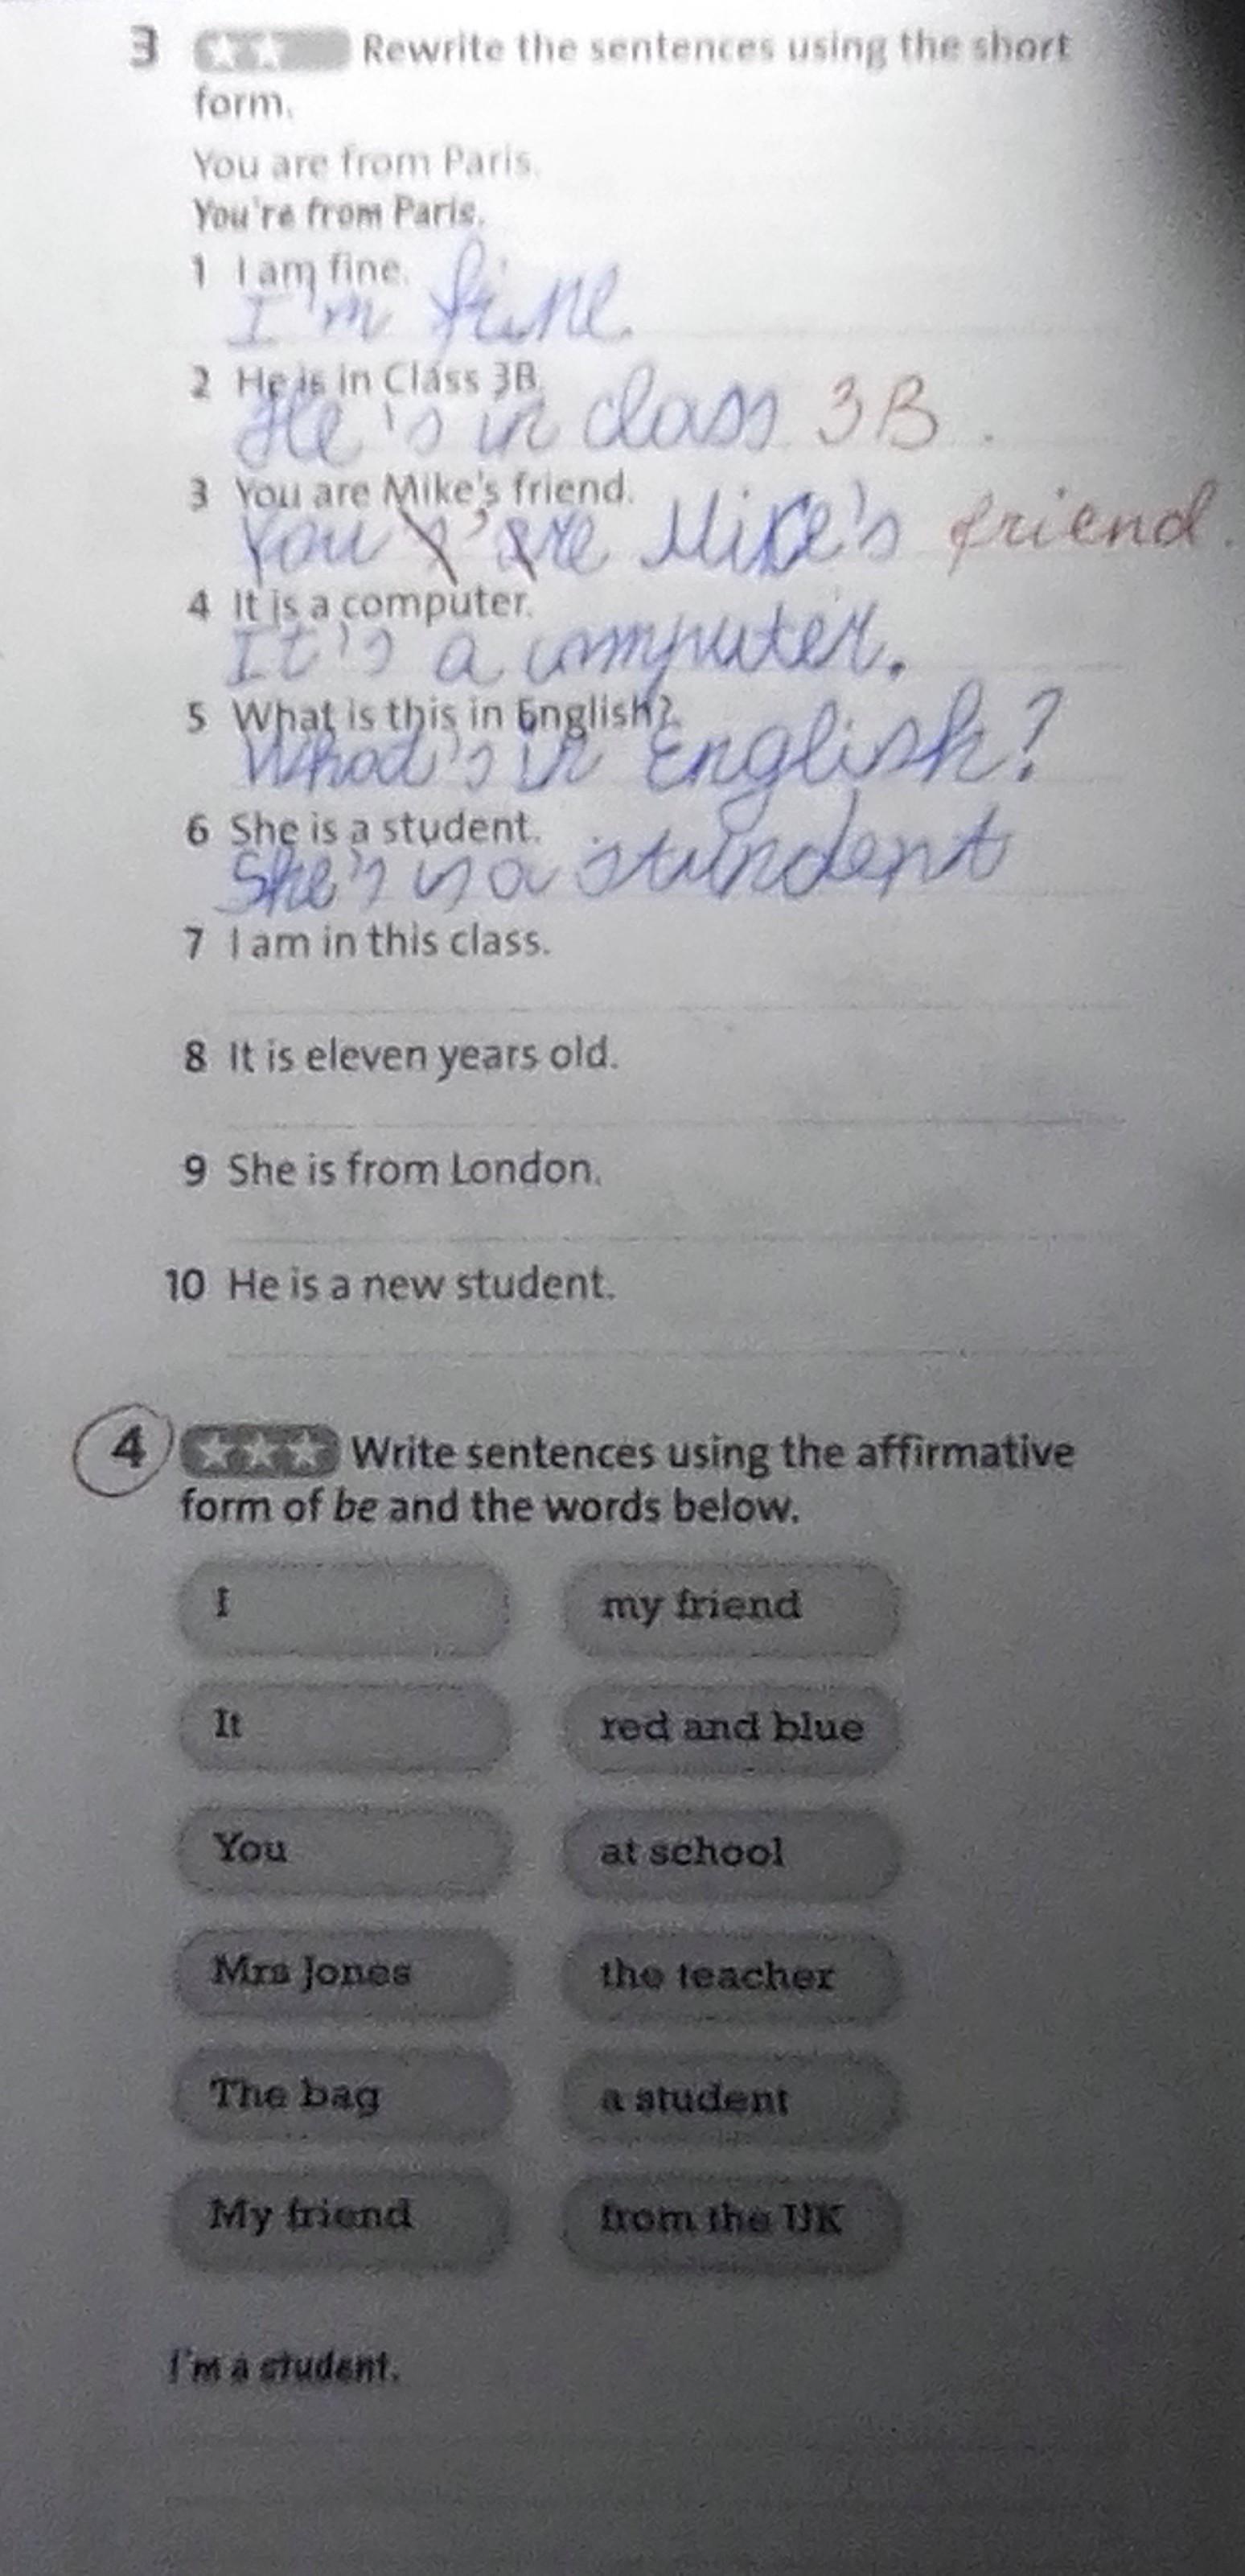 3 Rewrite the sentences using the short
form.
You are from Paris.
You're from Paris.
1 I am fine.
I'm fine.
2 He is in Class 3B.
He's in class 3B.
3 You are Mike's friend.
You 're Mike's friend.
4 It is a computer.
It's a computer.
5 What is this in English?
Whad's in English?
6 She is a student.
She's is a stundent
7 I am in this class.
8 It is eleven years old.
9 She is from London.
10 He is a new student.
4 Write sentences using the affirmative
form of be and the words below.
I my friend
It red and blue
You at school
Mrs Jones the teacher
The bag a student
My friend from the UK
I'm a student.